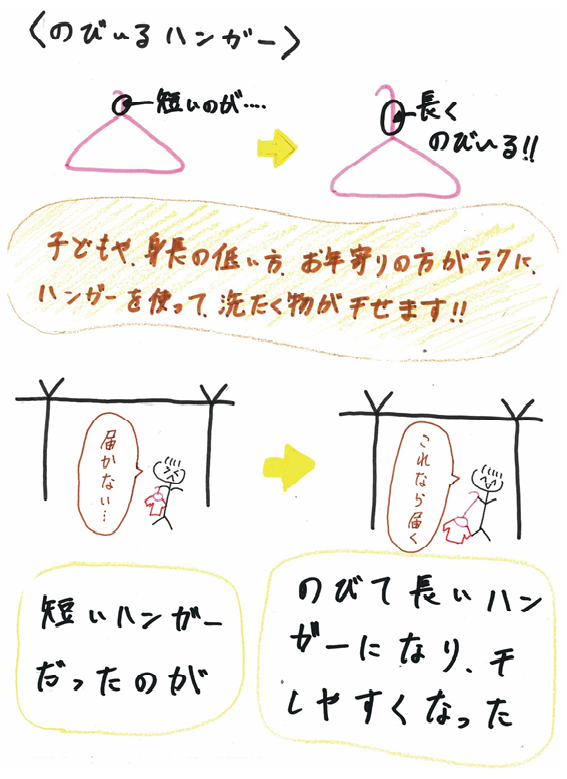 〈のびぃるハンガー〉
短いのが‥‥
長く
のびいる!!
子どもや、身長の低い方、お年寄りの方がラクに、
ハンガーを使って、洗たく物が干せます!!
届かない…
これなら届く
短いハンガー
だったのが
のびて長いハン
ガーになり、干
しやすくなった